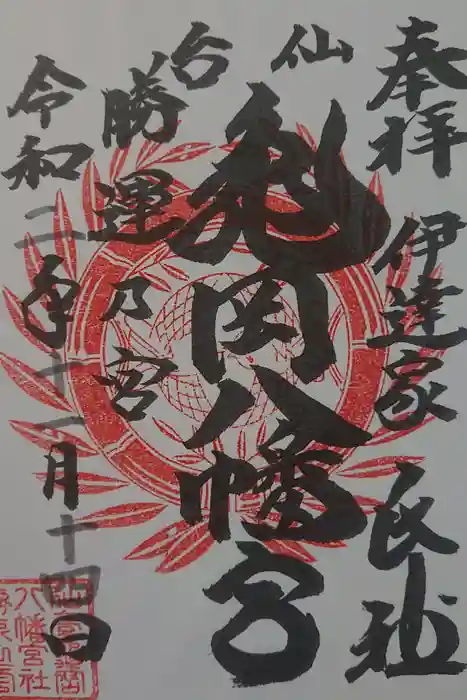 奉拝
伊達家氏社
仙台
亀岡八幡宮
勝運乃宮
令和二年十一月十四日
八幡宮社